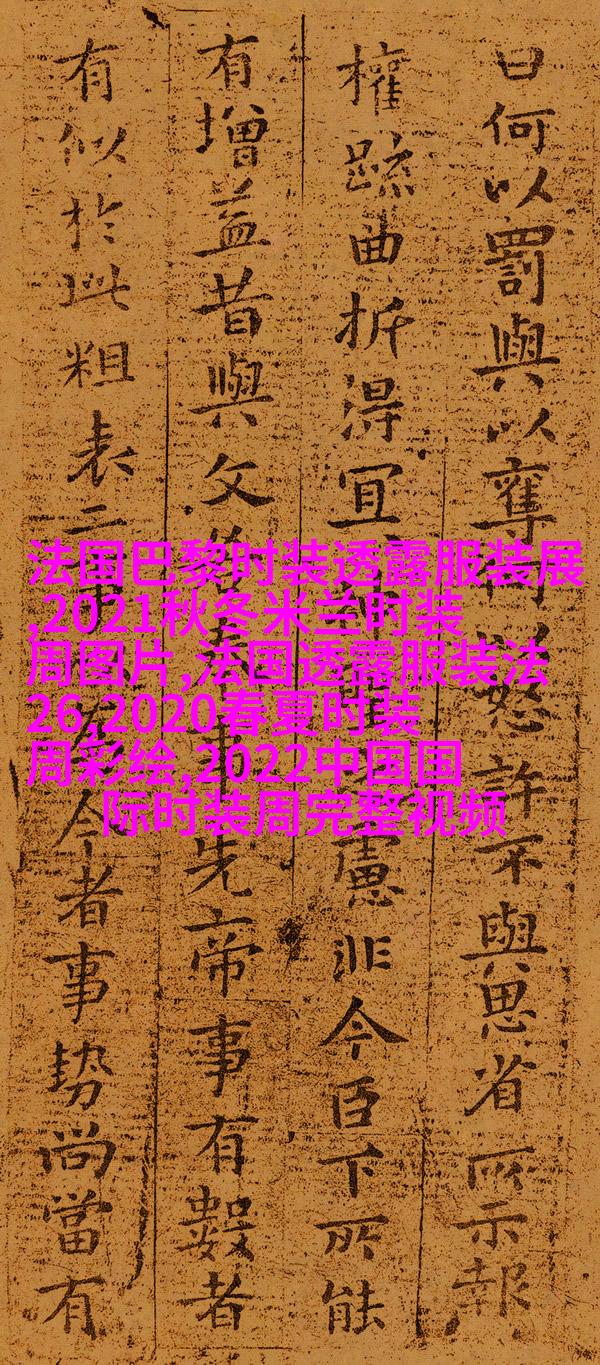 曰何以罰與以奪何以怒許不與思省所示報
權疏曲折得冝神聖之慮非今臣下所能
有增益昔與文若奉事先帝事有數者
有似於此粗表二事以為今者事勢尚當有
法国巴黎时装透露服装展
,2021秋冬米兰时装
周图片,法国透露服装法
26,2020春夏时装
周彩绘,2022中国国
际时装周完整视频